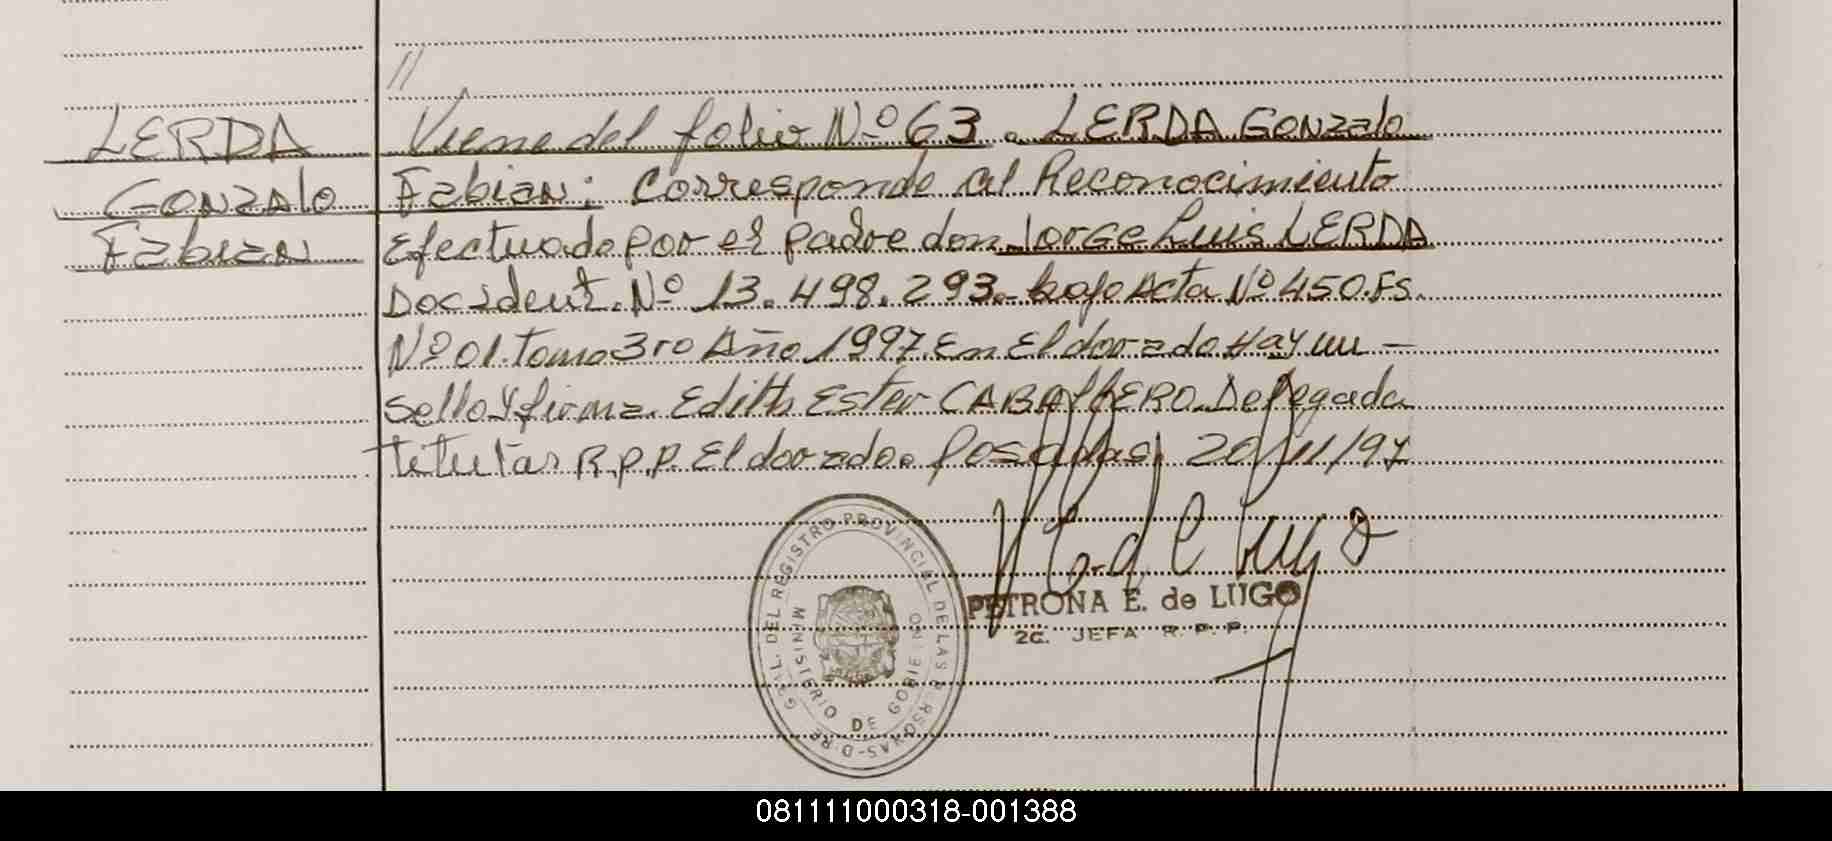 //
LERDA
Gonzalo
Fabian
Viene del folio Nº 63. LERDA Gonzalo
Fabian: Corresponde al Reconocimiento
Efectuado por el padre don Jorge Luis LERDA
Doc. ident. Nº 13.498.293.- bajo Acta Nº 450. Fs.
Nº 01. tomo 3ro Año 1997 En Eldorado Hay un -
sello y firma. Edith Ester CABAllERO. Delegada
titular R.P.P. Eldorado. Posadas, 20/11/97
PETRONA E. de LUGO
2G. JEFA R.P.P.
GRAL. DEL REGISTRO PROVINCIAL DE LAS PERSONAS
MINISTERIO DE GOBIERNO
081111000318-001388